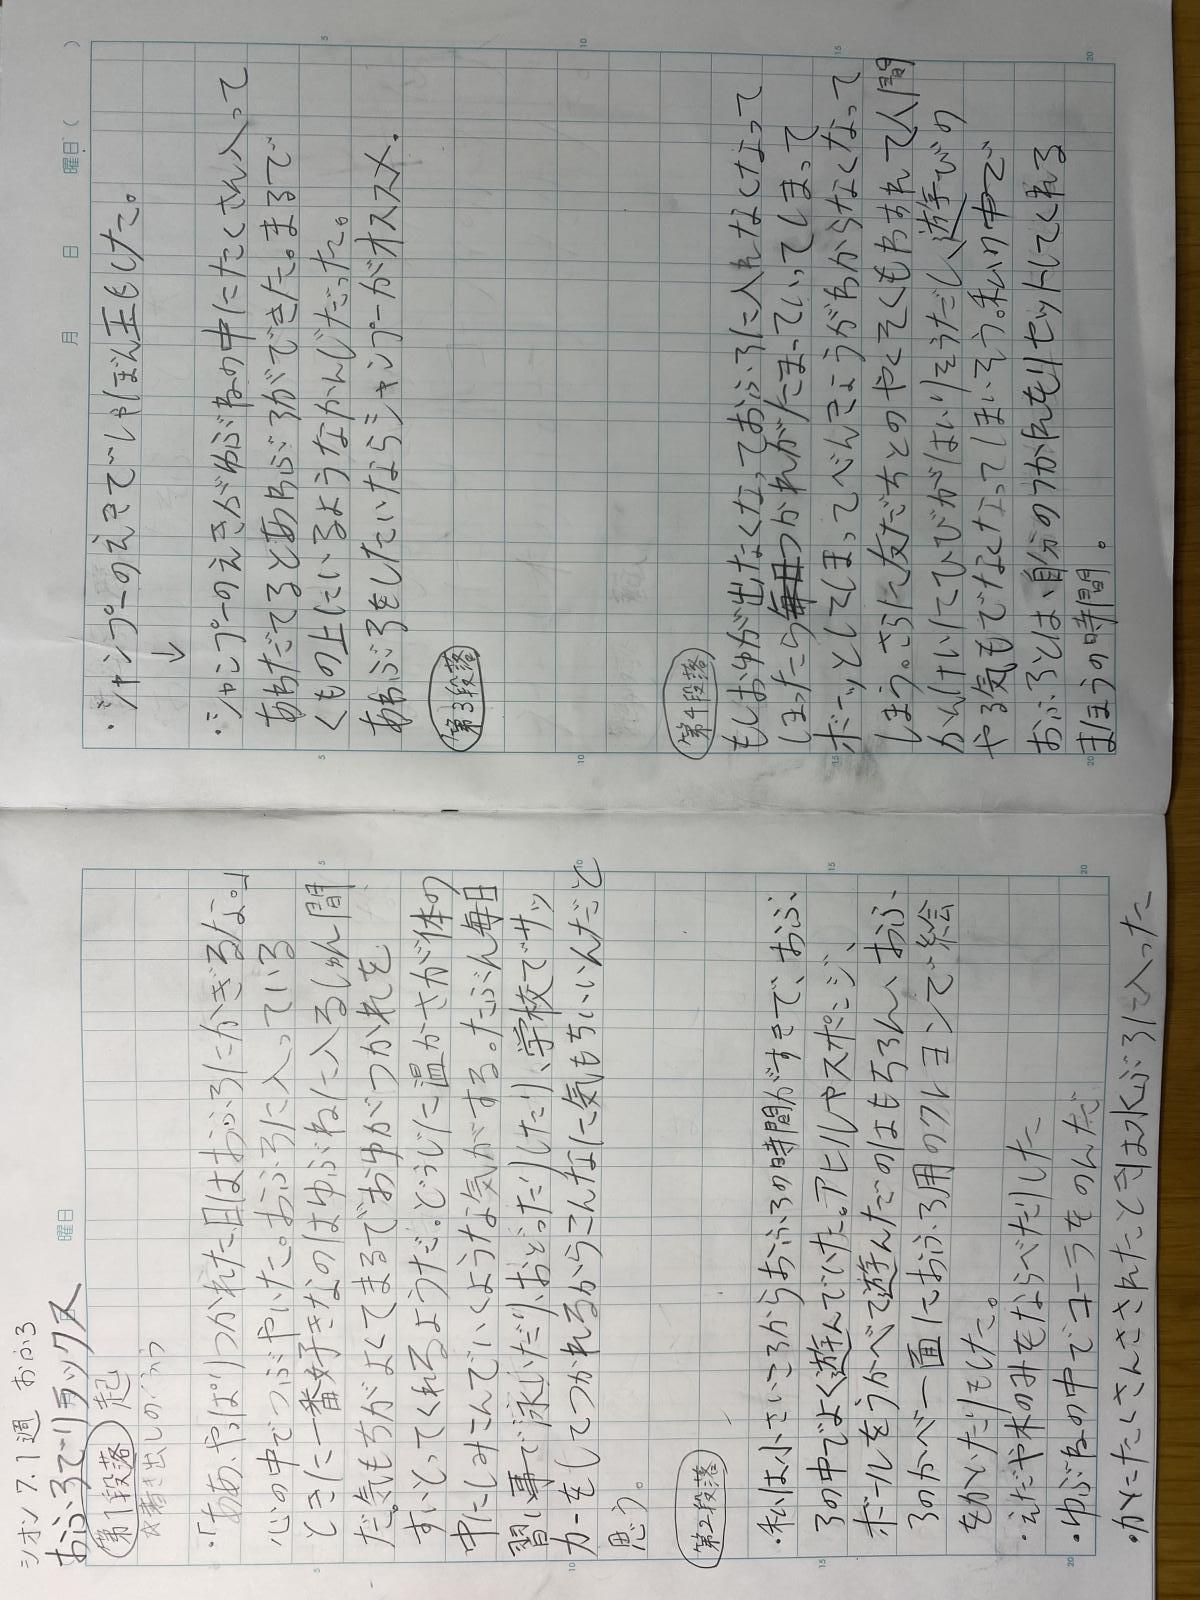 シオン7.1週 おふろ
おふろでリラックス
曜日
第1段落 起
☆書き出しのくふう
・「ああ、やっぱりつかれた日はおふろにかぎるな。」
心の中でつぶやいた。おふろに入っている
ときに一番好きなのはゆぶねに入るしゅん間
だ。気もちがよくてまるでおゆがつかれを
すいとってくれるようだ。どうじに温かさが体の
中にしみこんでいくような気がする。たぶん毎日
習い事で泳いだり、おどったりしたり、学校でサッ
カーをしてつかれるからこんなに気もちいいんだと
思う。
第2段落
・私は小さいころからおふろの時間がすきで、おふ
ろの中でよく遊んでいた。アヒルやスポンジ、
ボールをうかべて遊んだのはもちろん、おふ
ろのかべ一面におふろ用のクレヨンで絵
をかいたりもした。
・えだや木のみをならべたりした
・ゆぶねの中でコーラをのんだ
・かにたくさんさされたときは水ぶろに入った
月 日 曜日( )
・シャンプーのえきでしゃぼん玉もした。
↓
・シャンプーのえきがゆぶねの中にたくさん入って
あわだてるとあわぶろができた。まるで
くもの上にいるようなかんじだった。
あわぶろをしたいならシャンプーがオススメ。
第3段落
第4段落
もしおゆが出なくなっておふろに入れなくなって
しまったら毎日つかれがたまっていってしまって
ボーッとしてしまってべんきょうがわからなくなって
しまう。さらに友だちとのやくそくもわすれて人間
かんけいにひびがはいりそうだし、遊びの
やる気もでなくなってしまいそう。私の中で
おふろとは、自分のつかれをリセットしてくれる
まほうの時間。
5
10
15
20
5
10
15
20
5
10
15
20
5
10
15
20